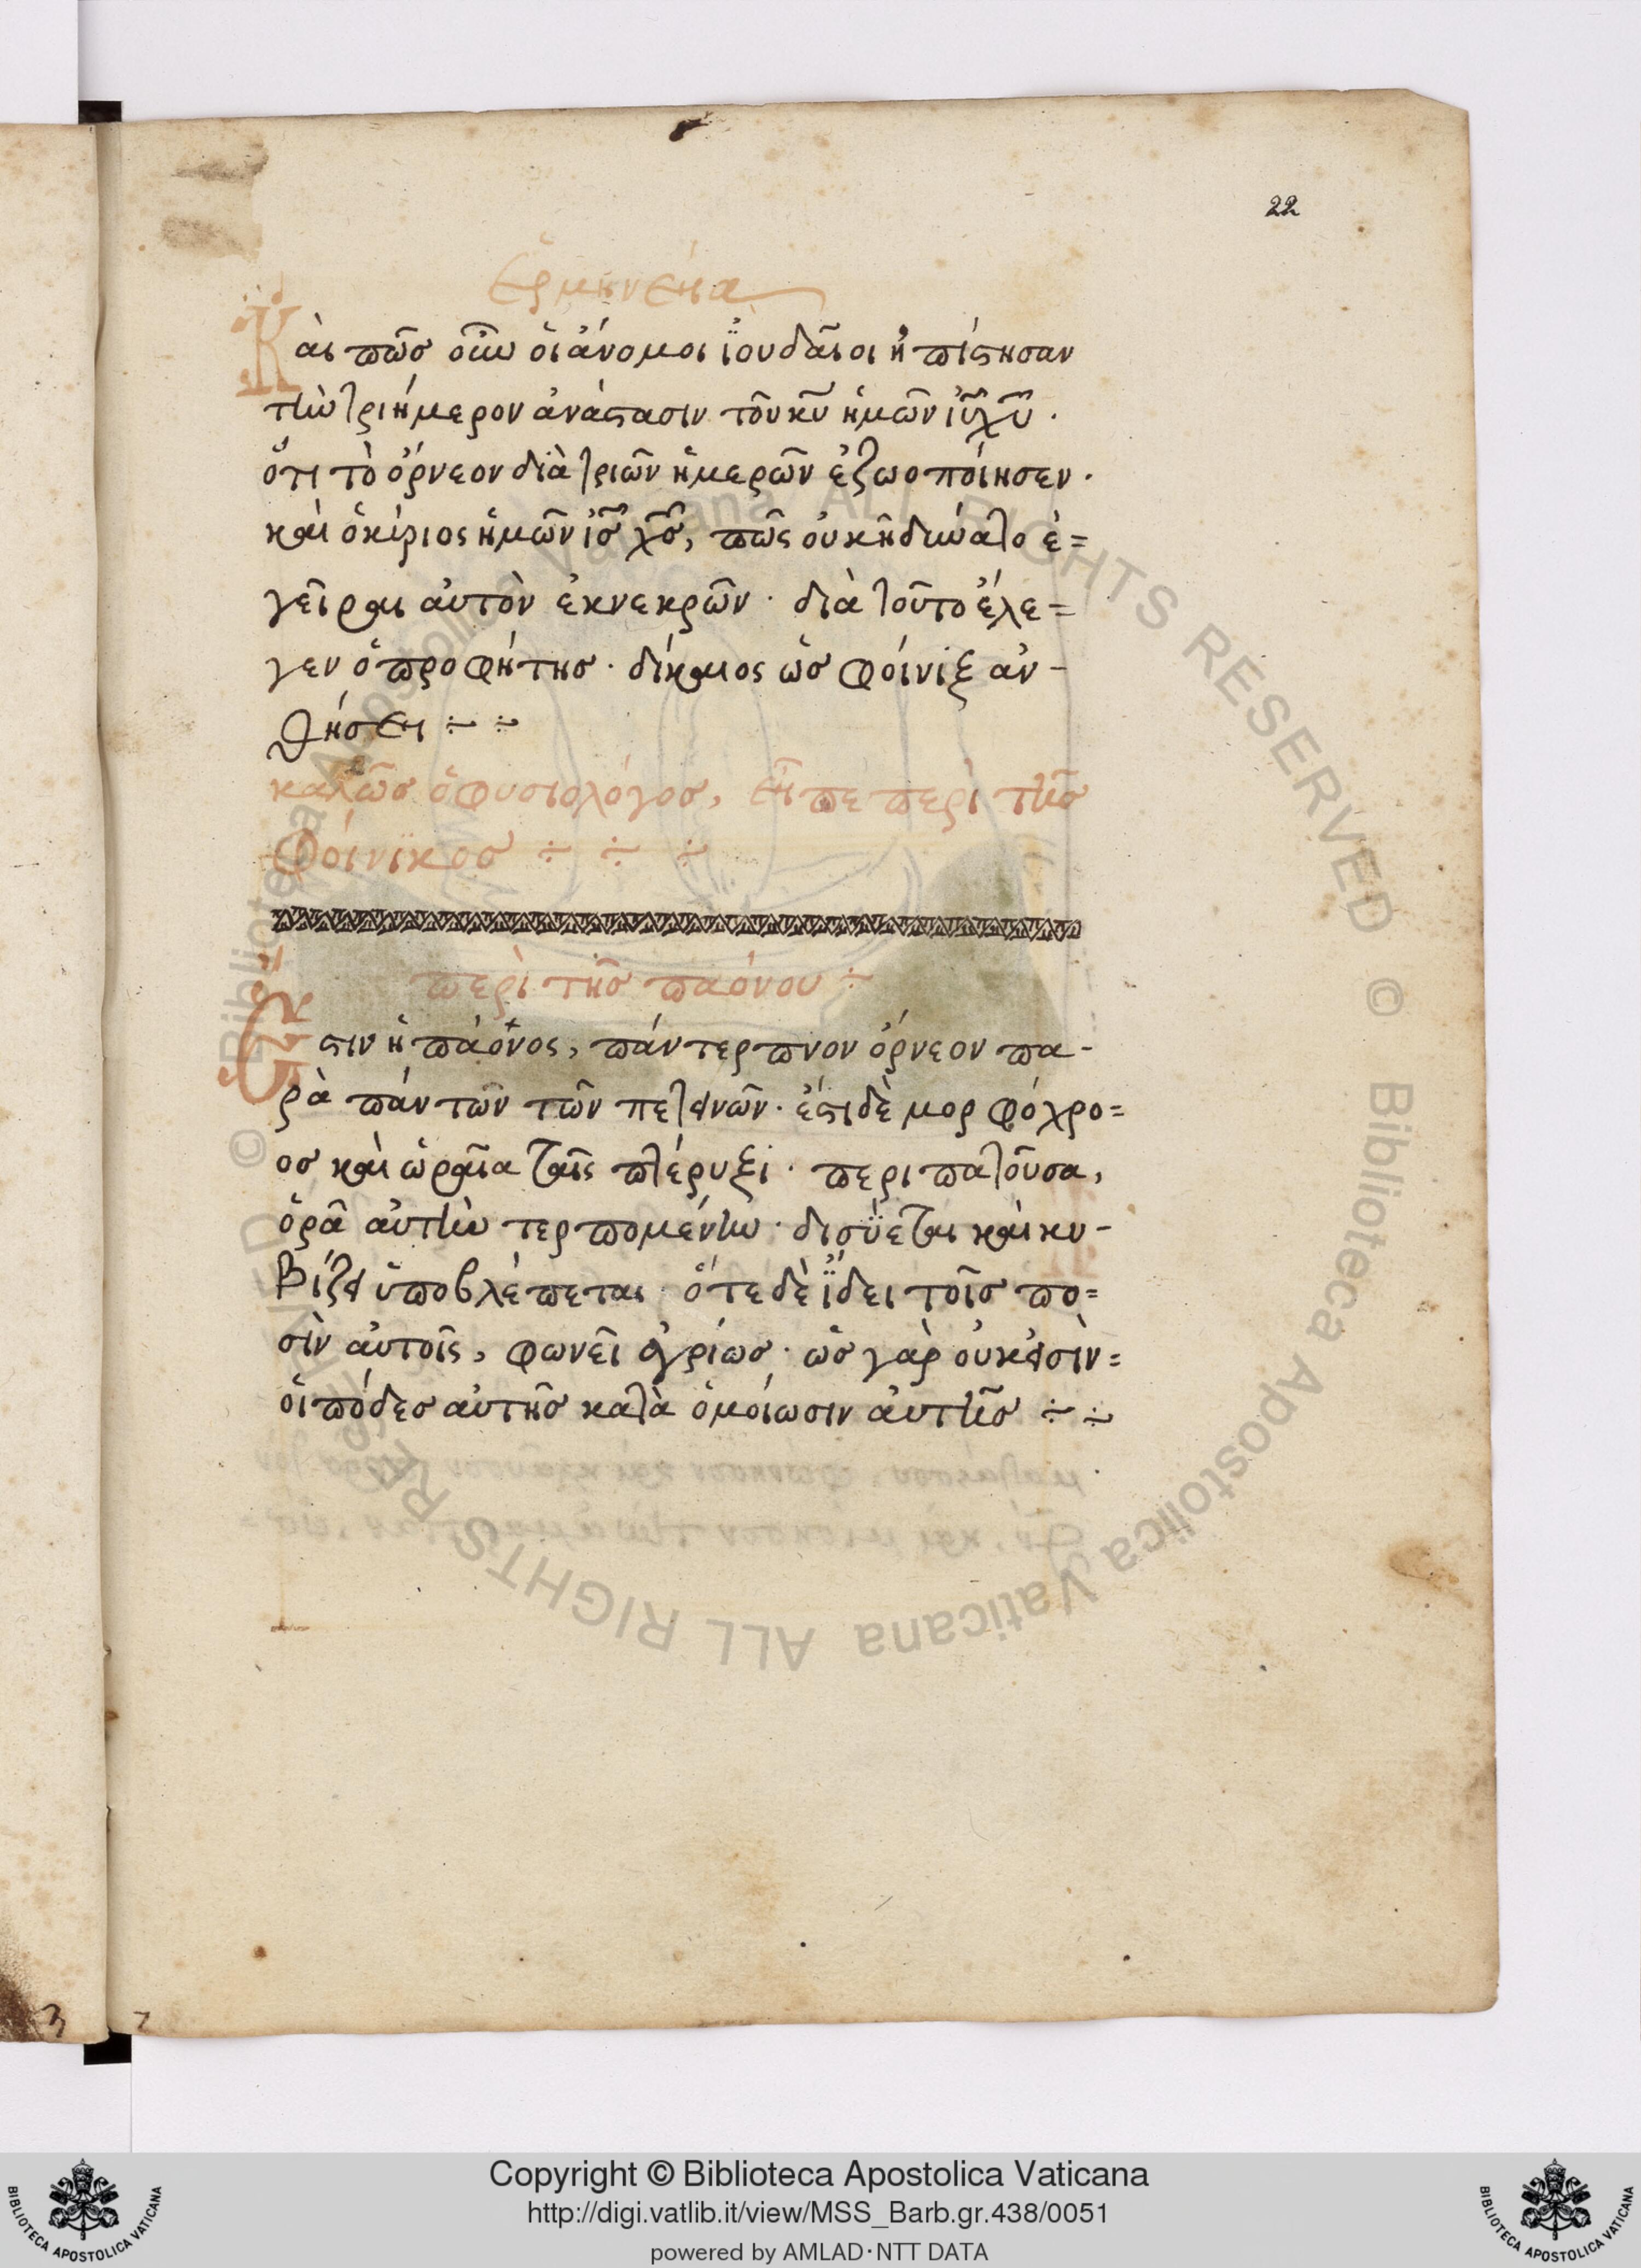 22
Ἑρμηνεία
Κὰι πῶσ οὖν ὁι ἄνομοι ϊουδᾶιοι ἠπίστησαν
τὴν τριήμερον ἀνάστασιν τοῦ κῦ ἡμῶν ἰῦ χῦ ·
ὅτι τὸ ὄρνεον διὰ τριῶν ἡμερῶν ἐζωοποίησεν ·
καὶ ὁ κύριος ἡμῶν ἰσ χσ, πῶς οὐκ ἠδύνατο ἐ=
γεῖραι αὑτὸν ἐκ νεκρῶν · διὰ τοῦτο ἔλε=
γεν ὁ προφήτησ · δίκαιος ὡσ φοίνιξ ἀν-
θήσει ÷ ÷
καλῶσ ὁ φυσιολόγοσ, εἶπε περὶ τῆσ
Φοίνικοσ ÷ ÷ ÷
περὶ τῆσ παόνου ÷
Ἔστιν ἡ παόνος, πάντερπνον ὄρνεον πα-
ρὰ πάντων τῶν πετεινῶν · ἔστι δὲ μορφόχρο=
οσ καὶ ὡραῖα ταῖς πτέρυξι · περιπατοῦσα,
ὁρᾶ αὑτὴν τερπομένην · δισύεται καὶ κυ-
βίζει ὑποβλέπεται · ὅτε δὲ ἴδει τοῖσ πο=
σὶν αὐτοῖς, φωνεῖ ἀγρίωσ · ὡσ γὰρ οὐκ εἰσὶν=
οἱ πόδεσ αὐτῆσ κατὰ ὁμοίωσιν αὐτῆσ ÷ ÷
© Biblioteca Apostolica Vaticana ALL RIGHTS RESERVED © Biblioteca Apostolica Vaticana ALL RIGHTS RESERVED
BIBLIOTECA APOSTOLICA VATICANA
Copyright © Biblioteca Apostolica Vaticana
http://digi.vatlib.it/view/MSS_Barb.gr.438/0051
powered by AMLAD·NTT DATA
BIBLIOTECA APOSTOLICA VATICANA